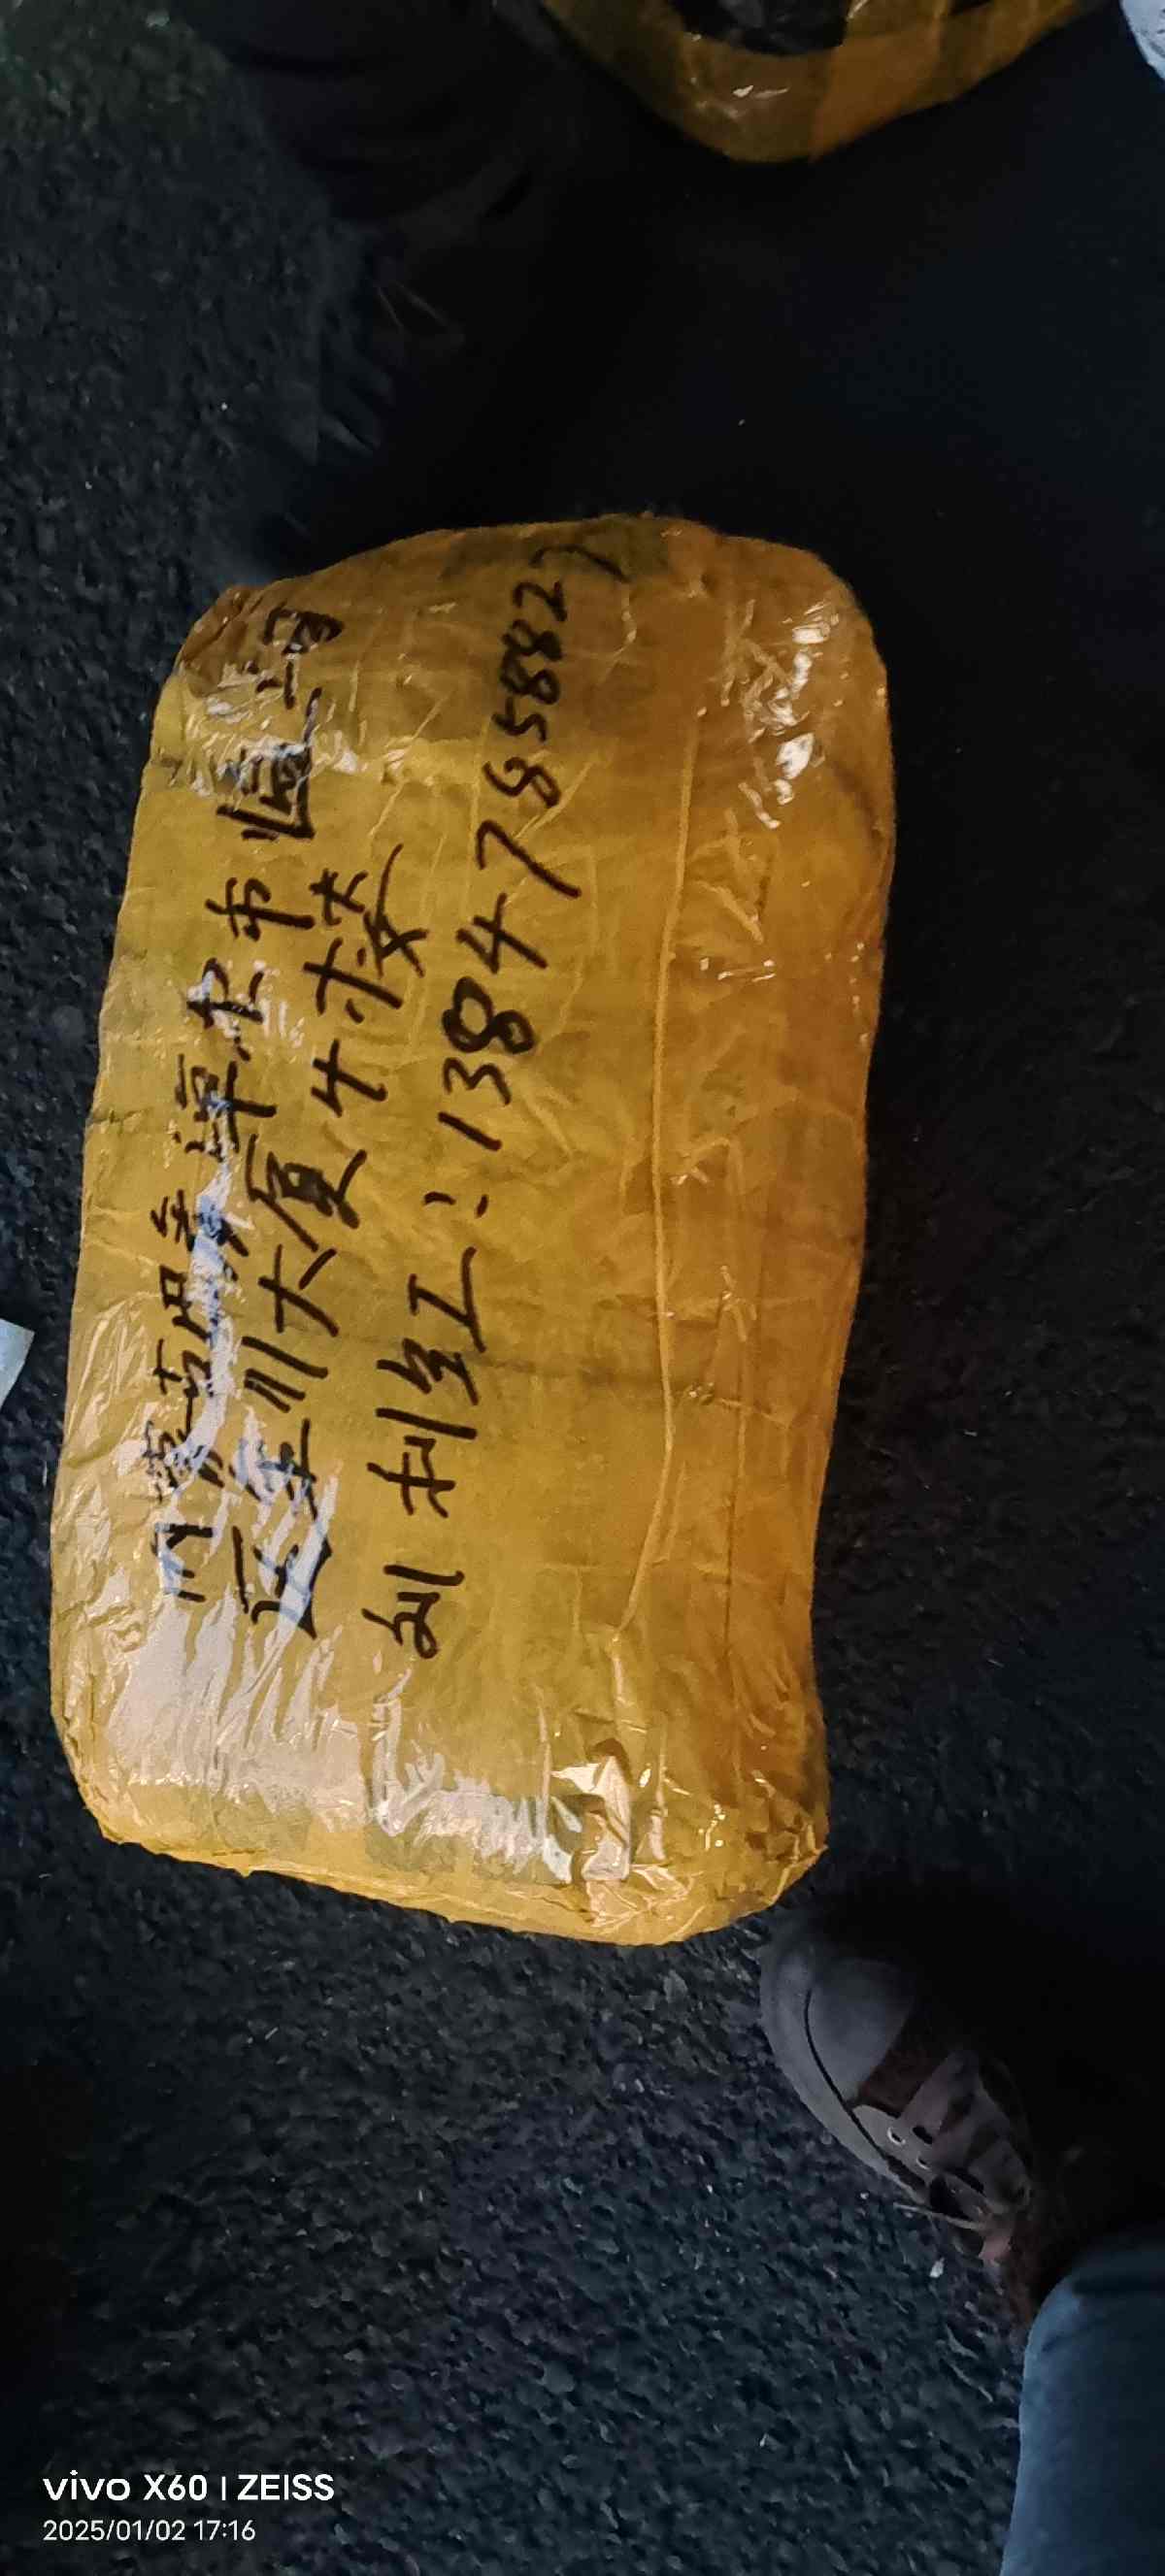 内蒙古巴彦淖尔市临河
区金川大厦4楼
刘利红:13847858827
vivo X60 | ZEISS
2025/01/02 17:16